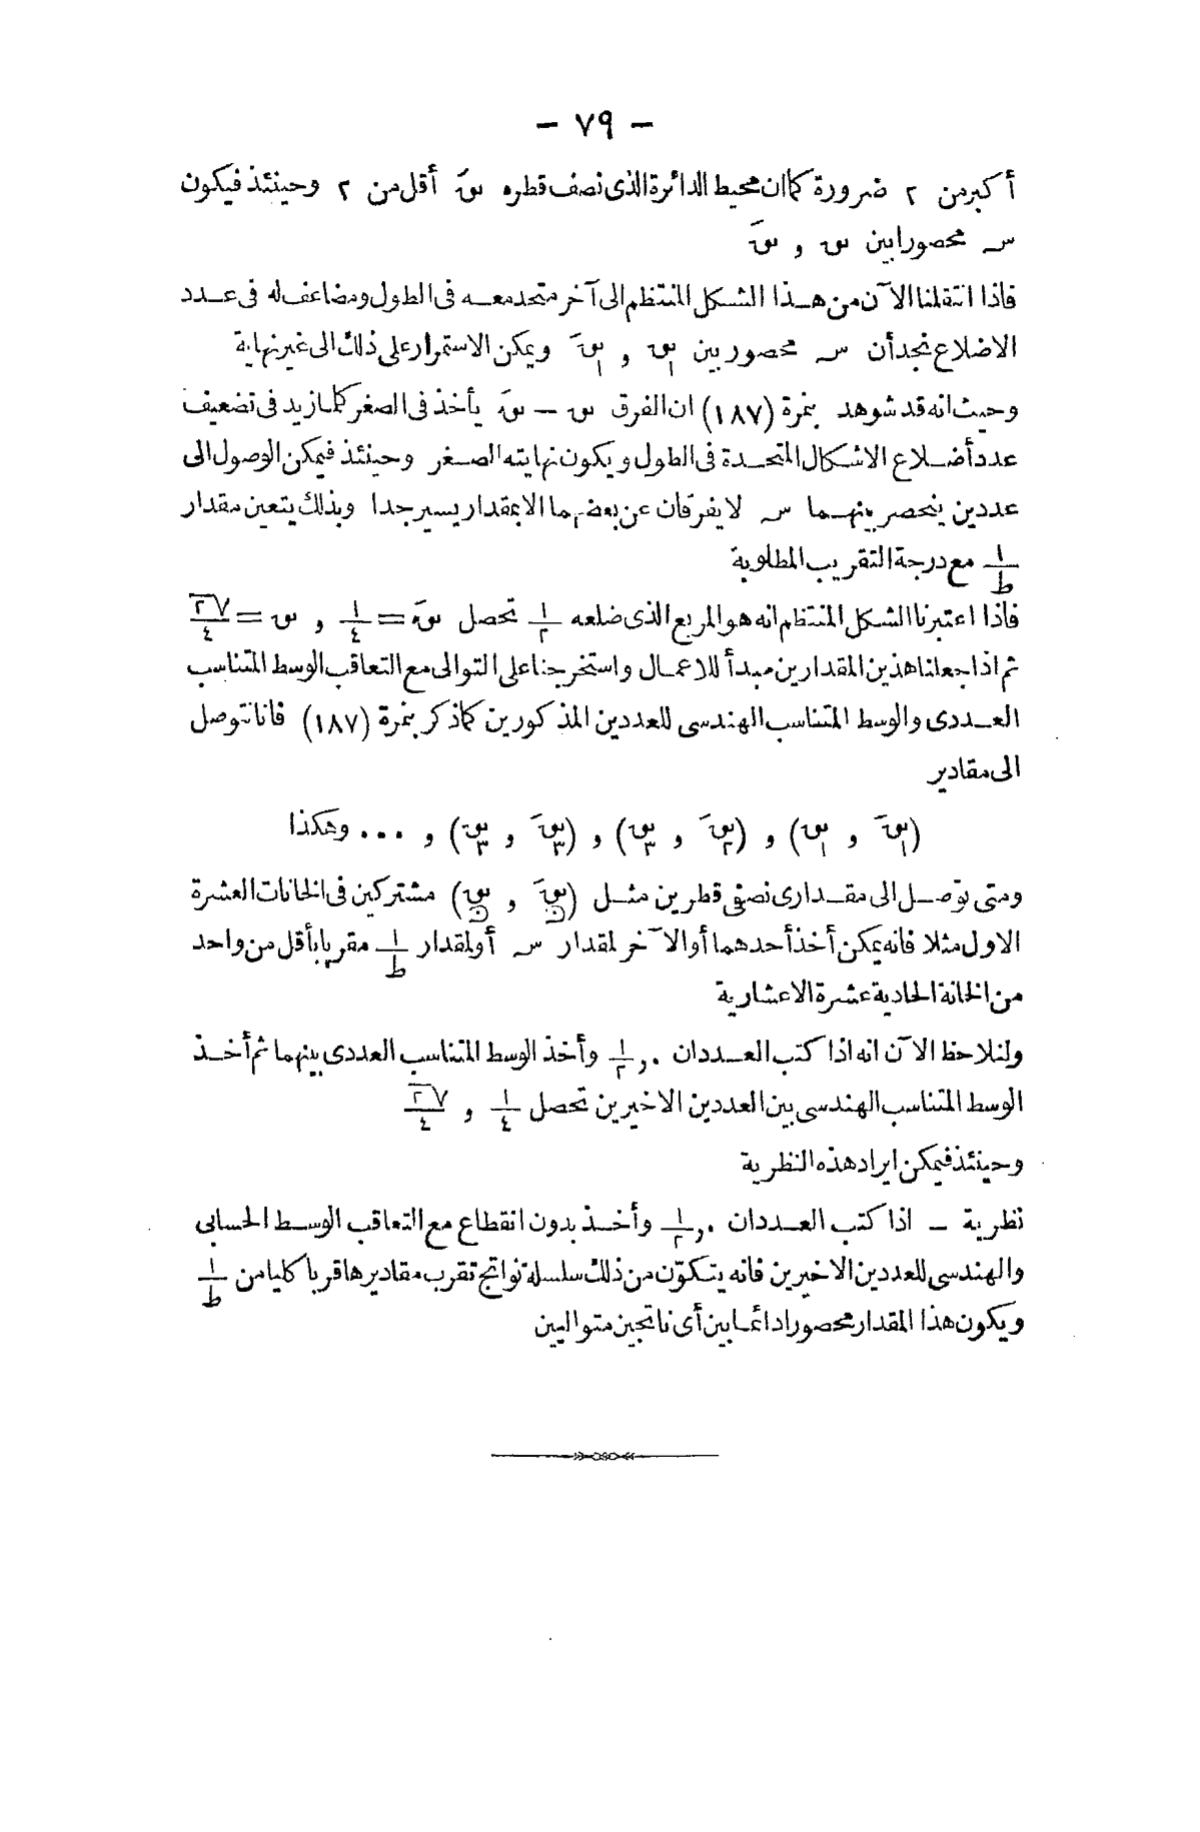 — ٧٩ —
أكبر من ٢ ضرورة كما ان محيط الدائرة الذى نصف قطره سَ أقل من ٢ وحينئذ فيكون
س محصورا بين س و سَ
فاذا انتقلنا الآن من هذا الشكل المنتظم الى آخر متحد معه فى الطول ومضاعف له فى عدد
الاضلاع نجد أن س محصور بين س١ و سَ١ ويمكن الاستمرار على ذلك الى غير نهاية
وحيث انه قد شوهد بنمرة (١٨٧) ان الفرق س — سَ يأخذ فى الصغر كلما زيد فى تضعيف
عدد أضلاع الاشكال المتحدة فى الطول ويكون نهايته الصفر وحينئذ فيمكن الوصول الى
عددين ينحصر بينهما س لا يفرقان عن بعضهما الا بمقدار يسير جدا وبذلك يتعين مقدار
١/ط مع درجة التقريب المطلوبة
فاذا اعتبرنا الشكل المنتظم انه هو المربع الذى ضلعه ١/٢ تحصل سَ = ١/٤ و س = √٢/٤
ثم اذا جعلنا هذين المقدارين مبدأ للاعمال واستخرجنا على التوالى مع التعاقب الوسط المتناسب
العددى والوسط المتناسب الهندسى للعددين المذكورين كما ذكر بنمرة (١٨٧) فاننا نتوصل
الى مقادير
(سَ١ و س١) و (سَ٢ و س٣) و (سَ٣ و س٣) و ... وهكذا
ومتى توّصل الى مقدارى نصفى قطرين مثل (سَن و سن) مشتركين فى الخانات العشرة
الاول مثلا فانه يمكن أخذ أحدهما أو الآخر لمقدار س أو لمقدار ١/ط مقربا بأقل من واحد
من الخانة الحادية عشرة الاعشارية
ولنلاحظ الآن انه اذا كتب العددان ٠ و ١/٢ وأخذ الوسط المتناسب العددى بينهما ثم أخذ
الوسط المتناسب الهندسى بين العددين الاخيرين تحصل ١/٤ و √٢/٤
وحينئذ فيمكن ايراد هذه النظرية
نظرية — اذا كتب العددان ٠ و ١/٢ وأخذ بدون انقطاع مع التعاقب الوسط الحسابى
والهندسى للعددين الاخيرين فانه يتكوّن من ذلك سلسلة نواتج تقرب مقاديرها قربا كليا من ١/ط
ويكون هذا المقدار محصورا دائما بين أى ناتجين متواليين